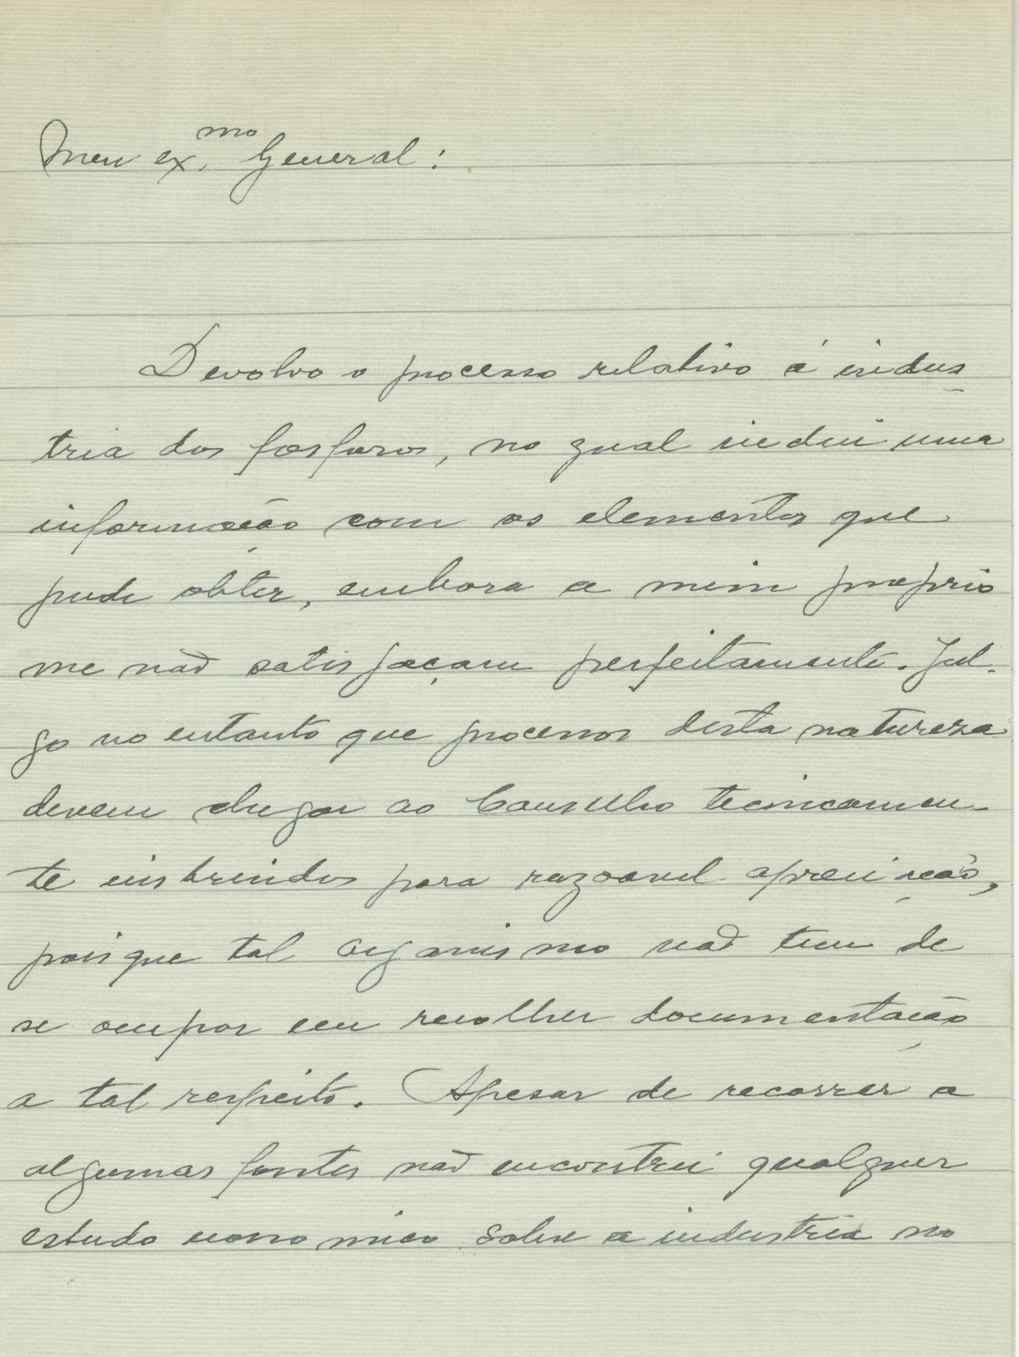 Meu ex.mo General:
Devolvo o processo relativo á indus
tria dos fosforos, no qual inclui uma
informação com os elementos que
pude obter, embora a mim proprio
me não satisfaçam perfeitamente. Jul-
go no entanto que processos desta natureza
devem chegar ao Conselho tecnicamen-
te instruidos para razoavel apreciação,
pois que tal organismo não tem de
se ocupar em recolher documentação
a tal respeito. Apesar de recorrer a
algumas fontes não encontrei qualquer
estudo economico sobre a industria no